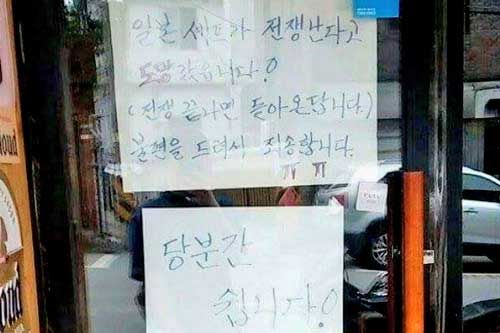 일본 셰프가 전쟁난다고
도망갔습니다!
(전쟁 끝나면 돌아온답니다.)
불편을 드려서 죄송합니다.
ㅠ ㅠ
당분간
쉽니다!